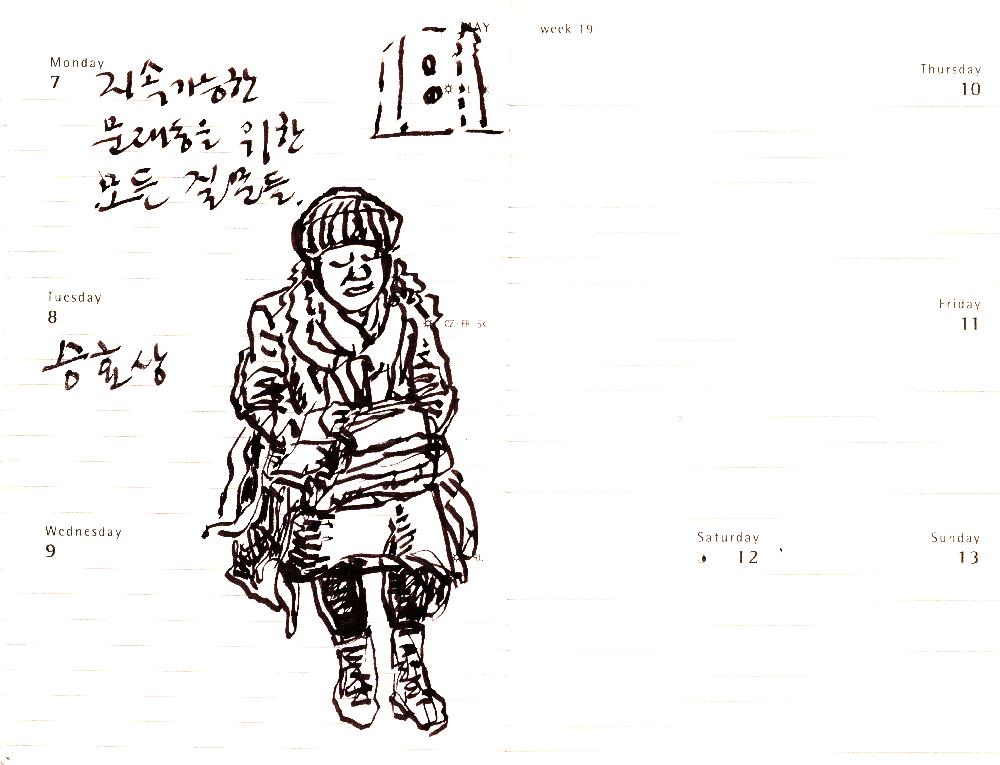 MAY
week 19
Monday
7
지속가능한
문래동을 위한
모든 질문들.
Tuesday
8
승효상
CZ·FR·SK
Wednesday
9
Thursday
10
Friday
11
Saturday
12
Sunday
13